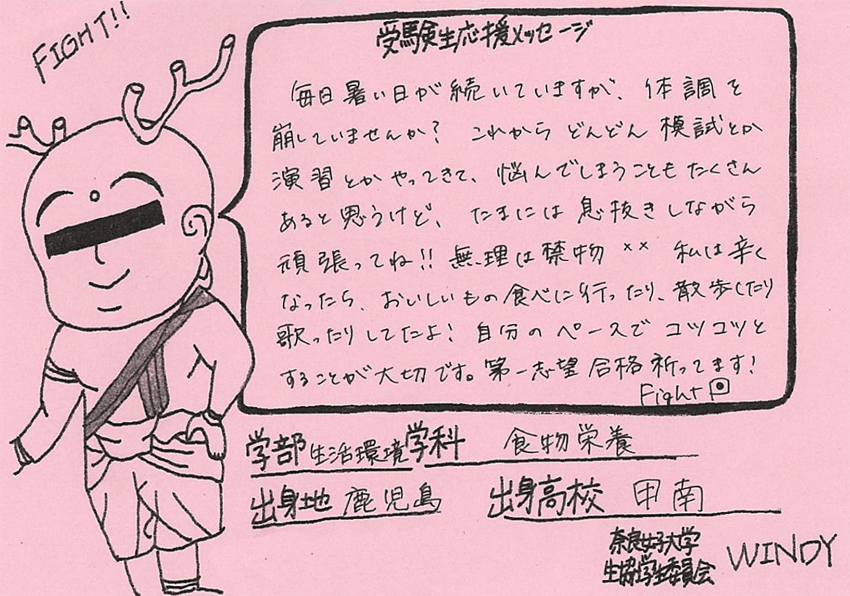 FIGHT!!
受験生応援メッセージ
毎日暑い日が続いていますが、体調を
崩していませんか？ これから どんどん 模試とか
演習とか やってきて、悩んでしまうことも たくさん
あると 思うけど、たまには 息抜きしながら
頑張ってね!! 無理は禁物 ×× 私は辛く
なったら、おいしいもの食べに行ったり、散歩したり
歌ったりしてたよ！ 自分の ペースで コツコツと
することが 大切です。第一志望 合格 祈ってます！
Fight
学部 生活環境 学科 食物栄養
出身地 鹿児島 出身高校 甲南
奈良女子大学
生協学生委員会 WINDY